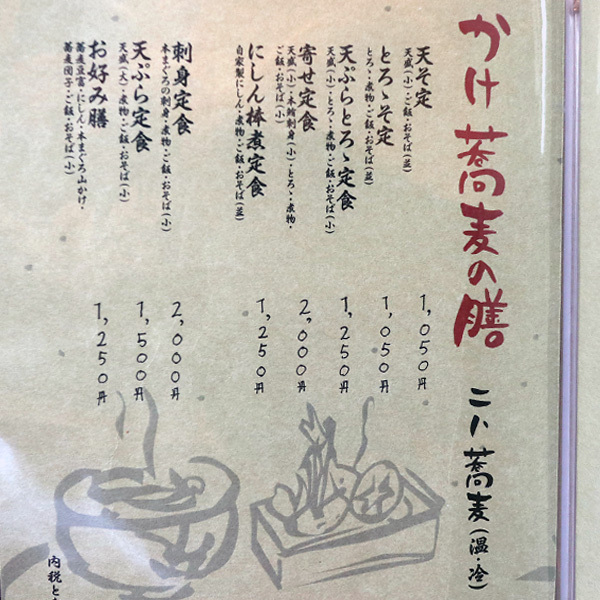 かけ蕎麦の膳。
二八蕎麦（温・冷）
天そ定
天盛（小）・ご飯・おそば（並）
1,050円
とろゝそ定
とろゝ・煮物・ご飯・おそば（並）
1,050円
天ぷらとろゝ定食
天盛（小）・とろゝ・煮物・ご飯・おそば（小）
1,250円
寄せ定食
天盛（小）・本鮪刺身（小）・とろゝ・煮物・
ご飯・おそば（小）
2,000円
にしん棒煮定食
自家製にしん・煮物・ご飯・おそば（並）
1,250円
刺身定食
本まぐろの刺身・煮物・ご飯・おそば（小）
2,000円
天ぷら定食
天盛（大）・煮物・ご飯・おそば（小）
1,500円
お好み膳
蕎麦豆富・にしん・本まぐろ山かけ・
蕎麦団子・ご飯・おそば（小）
1,250円
内税と